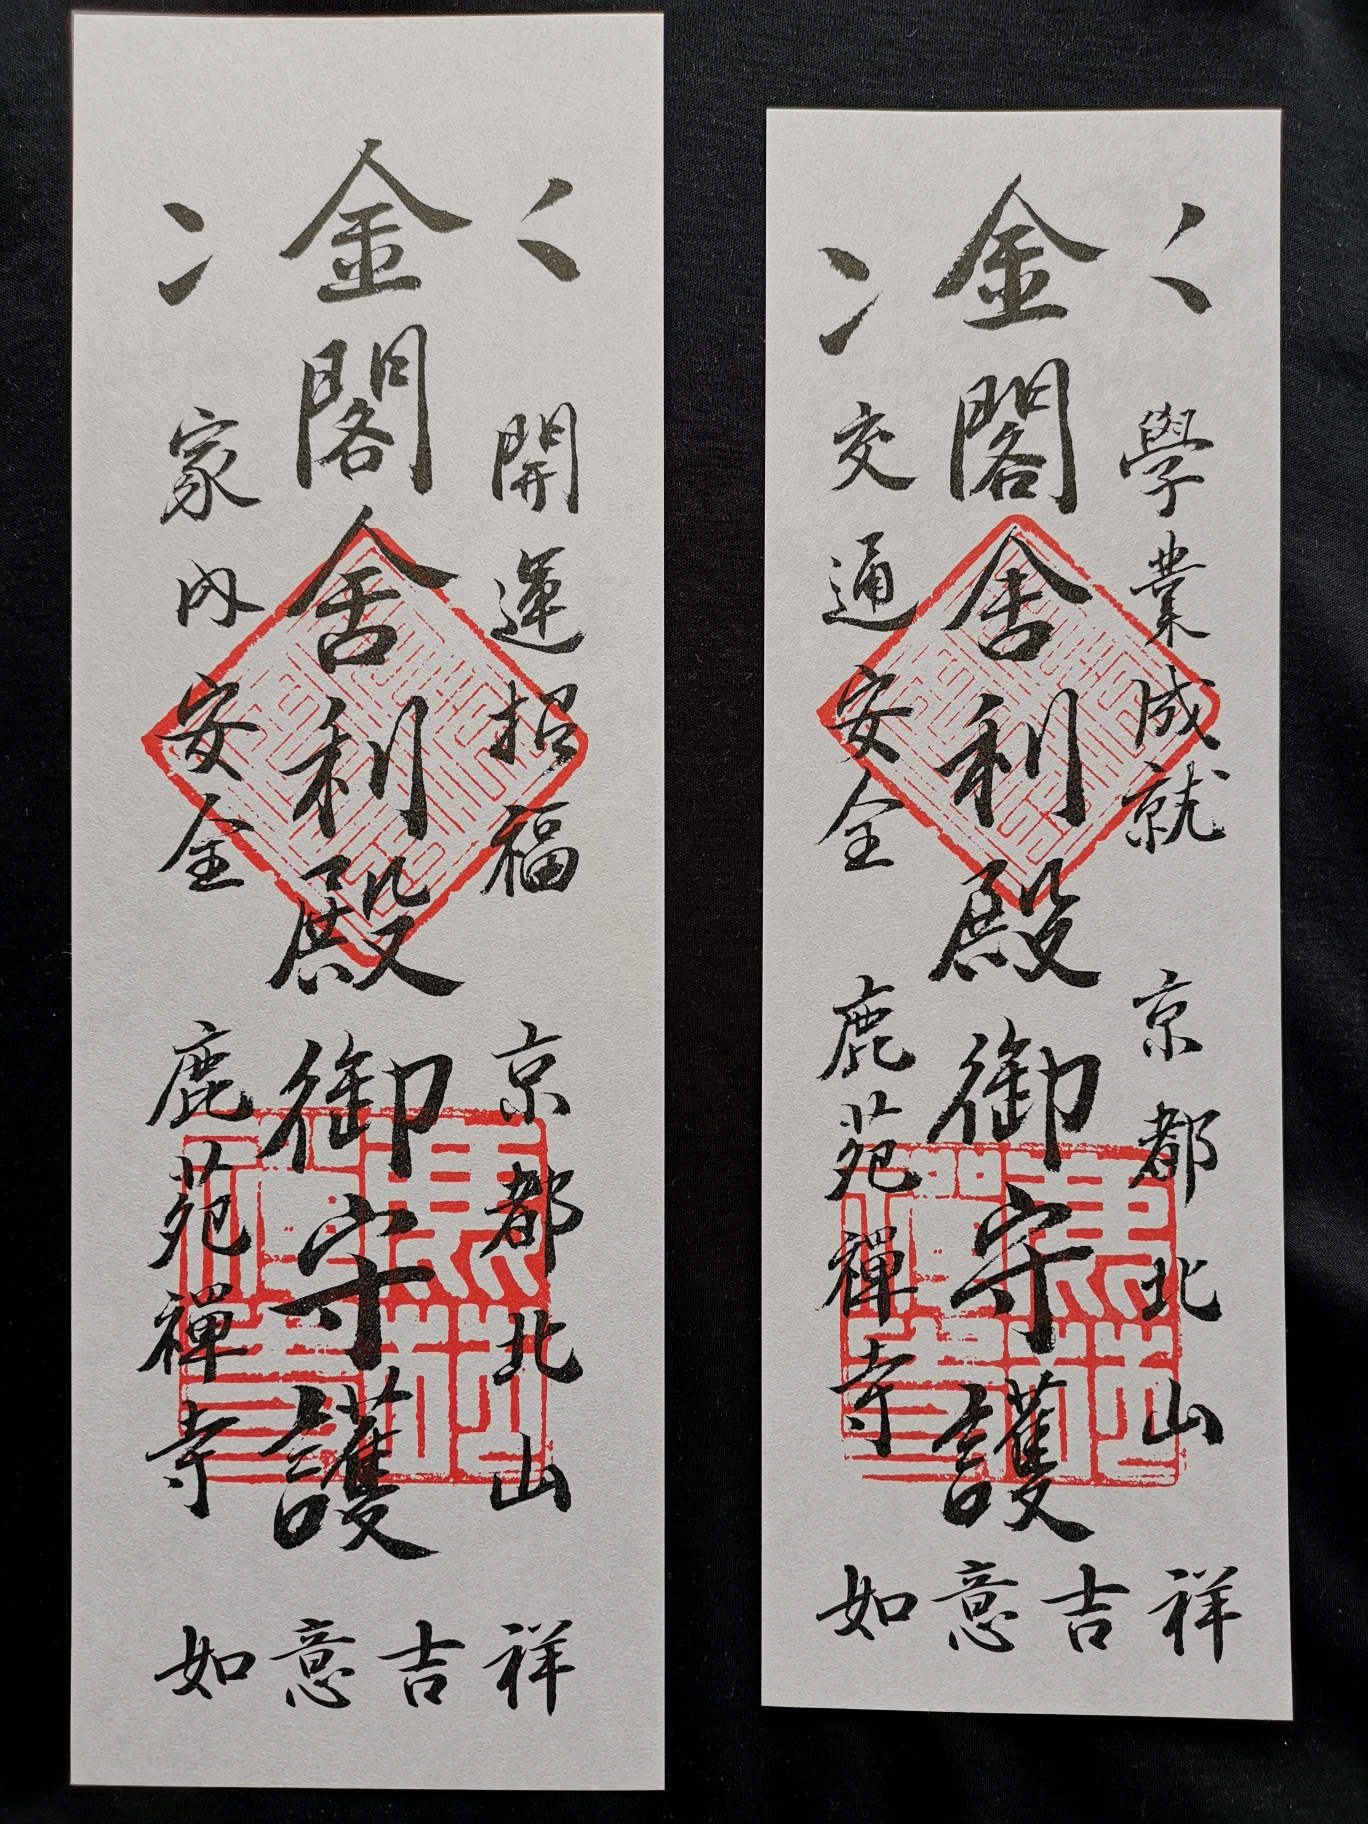 開運招福 京都北山
金閣舎利殿御守護
家内安全 鹿苑禅寺
如意吉祥
學業成就 京都北山
金閣舎利殿御守護
交通安全 鹿苑禅寺
如意吉祥